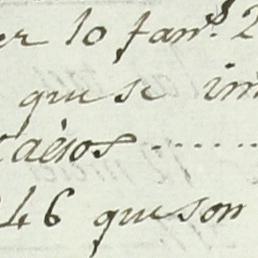 er 10 fan.s 2
que se im
cados
46 que son